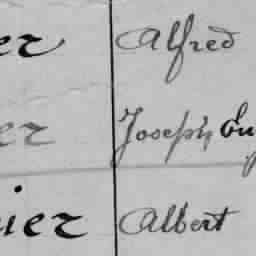 er Alfred
er Joseph Eu
ier Albert